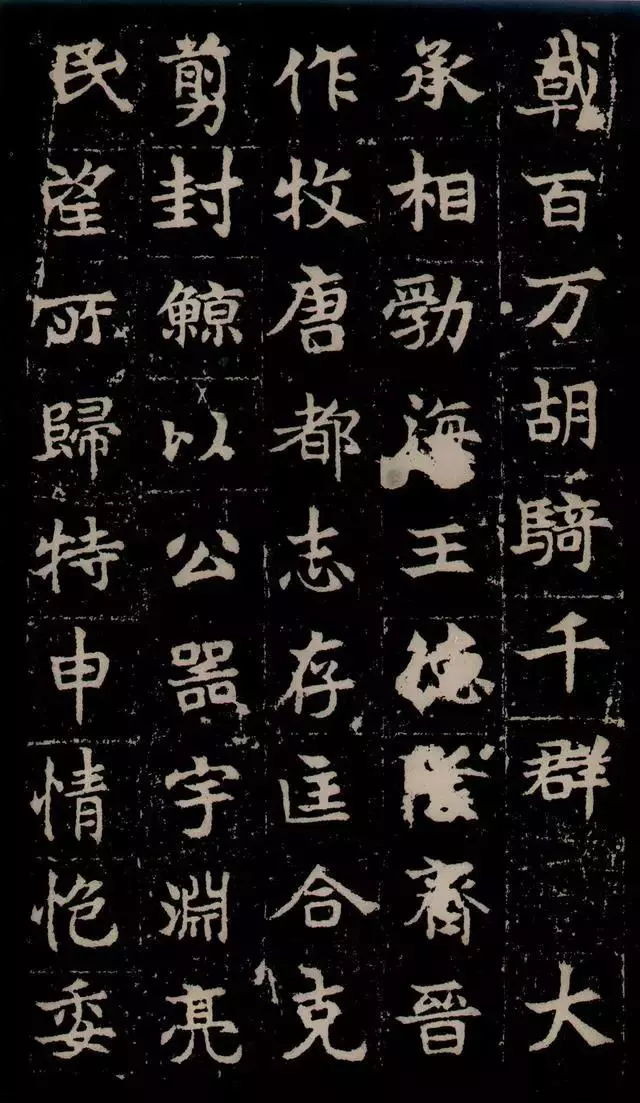 戟百万胡騎千群大
承相勃海王德隆齊晉
作牧唐都志存匡合克
剪封鯨以公器宇淵亮
民望所歸特申情委